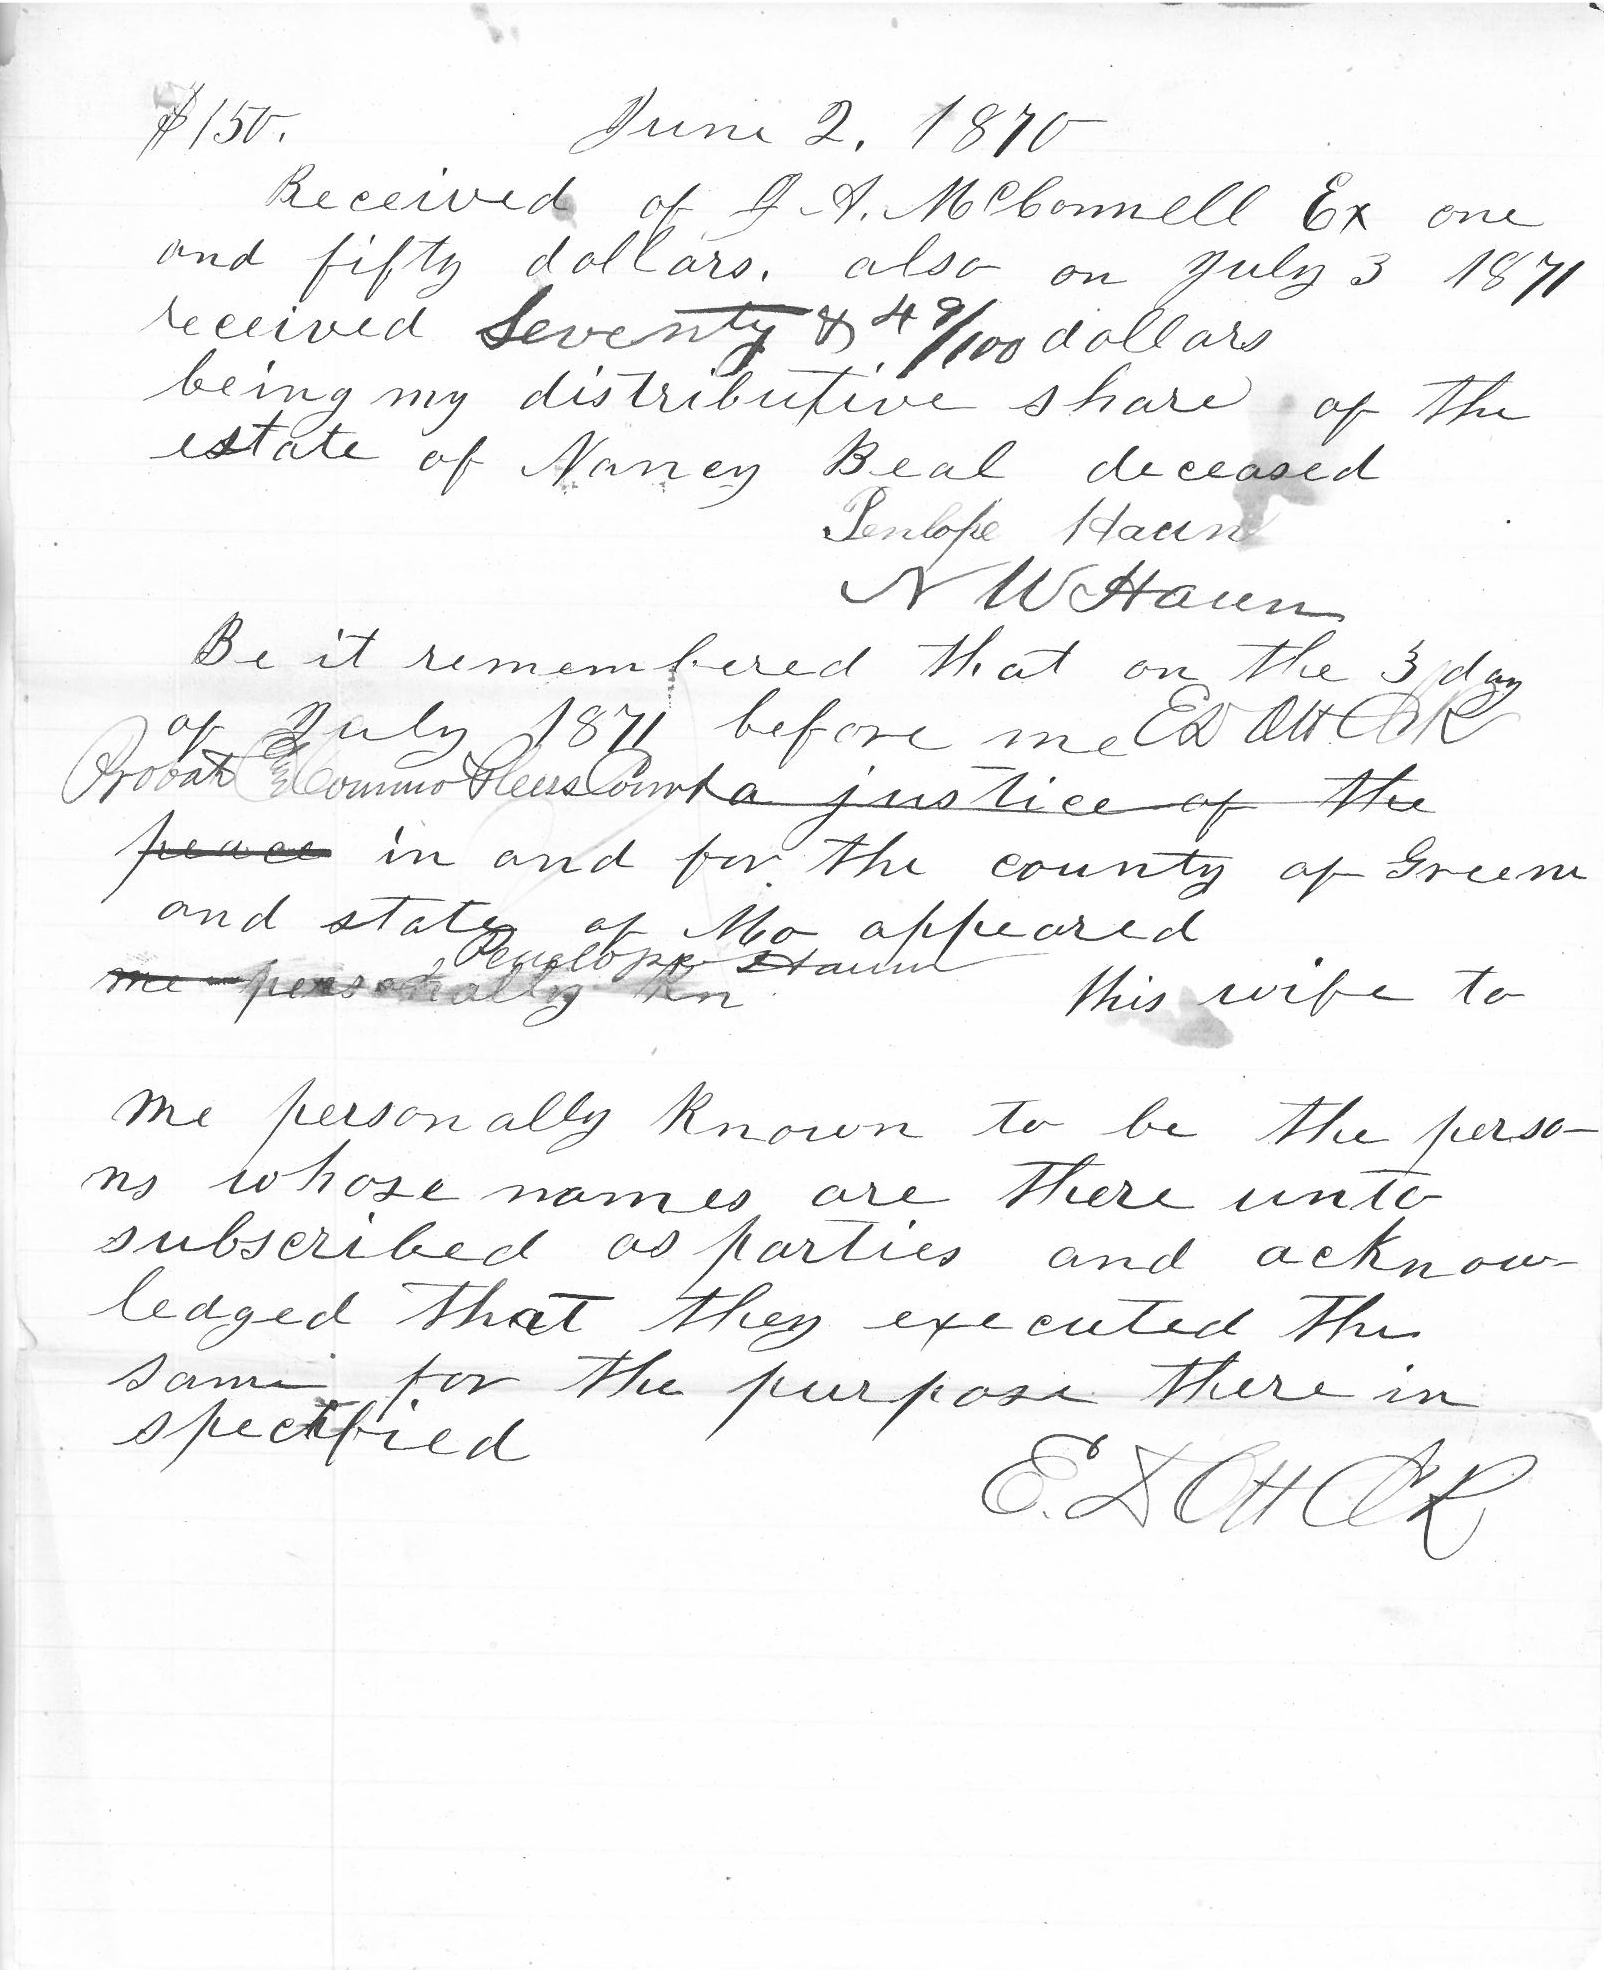 $150. June 2, 1870
Received of J A. McConnell Ex one
and fifty dollars. also on July 3 1871
received Seventy & 49/100 dollars
being my distributive share of the
estate of Nancy Beal deceased
Penlope Haun
N W Haun
Be it remembered that on the 3 day
of July 1871 before me E D Ott Clk
Probate Common Pleas Court a justice of the
peace in and for the county of Greene
and state of Mo appeared
Penelope Haun
me personally kn this wife to
me personally known to be the perso-
ns whose names are there unto
subscribed as parties and acknow-
ledged that they executed the
same for the purpose there in
specified
E. D Ott Clk